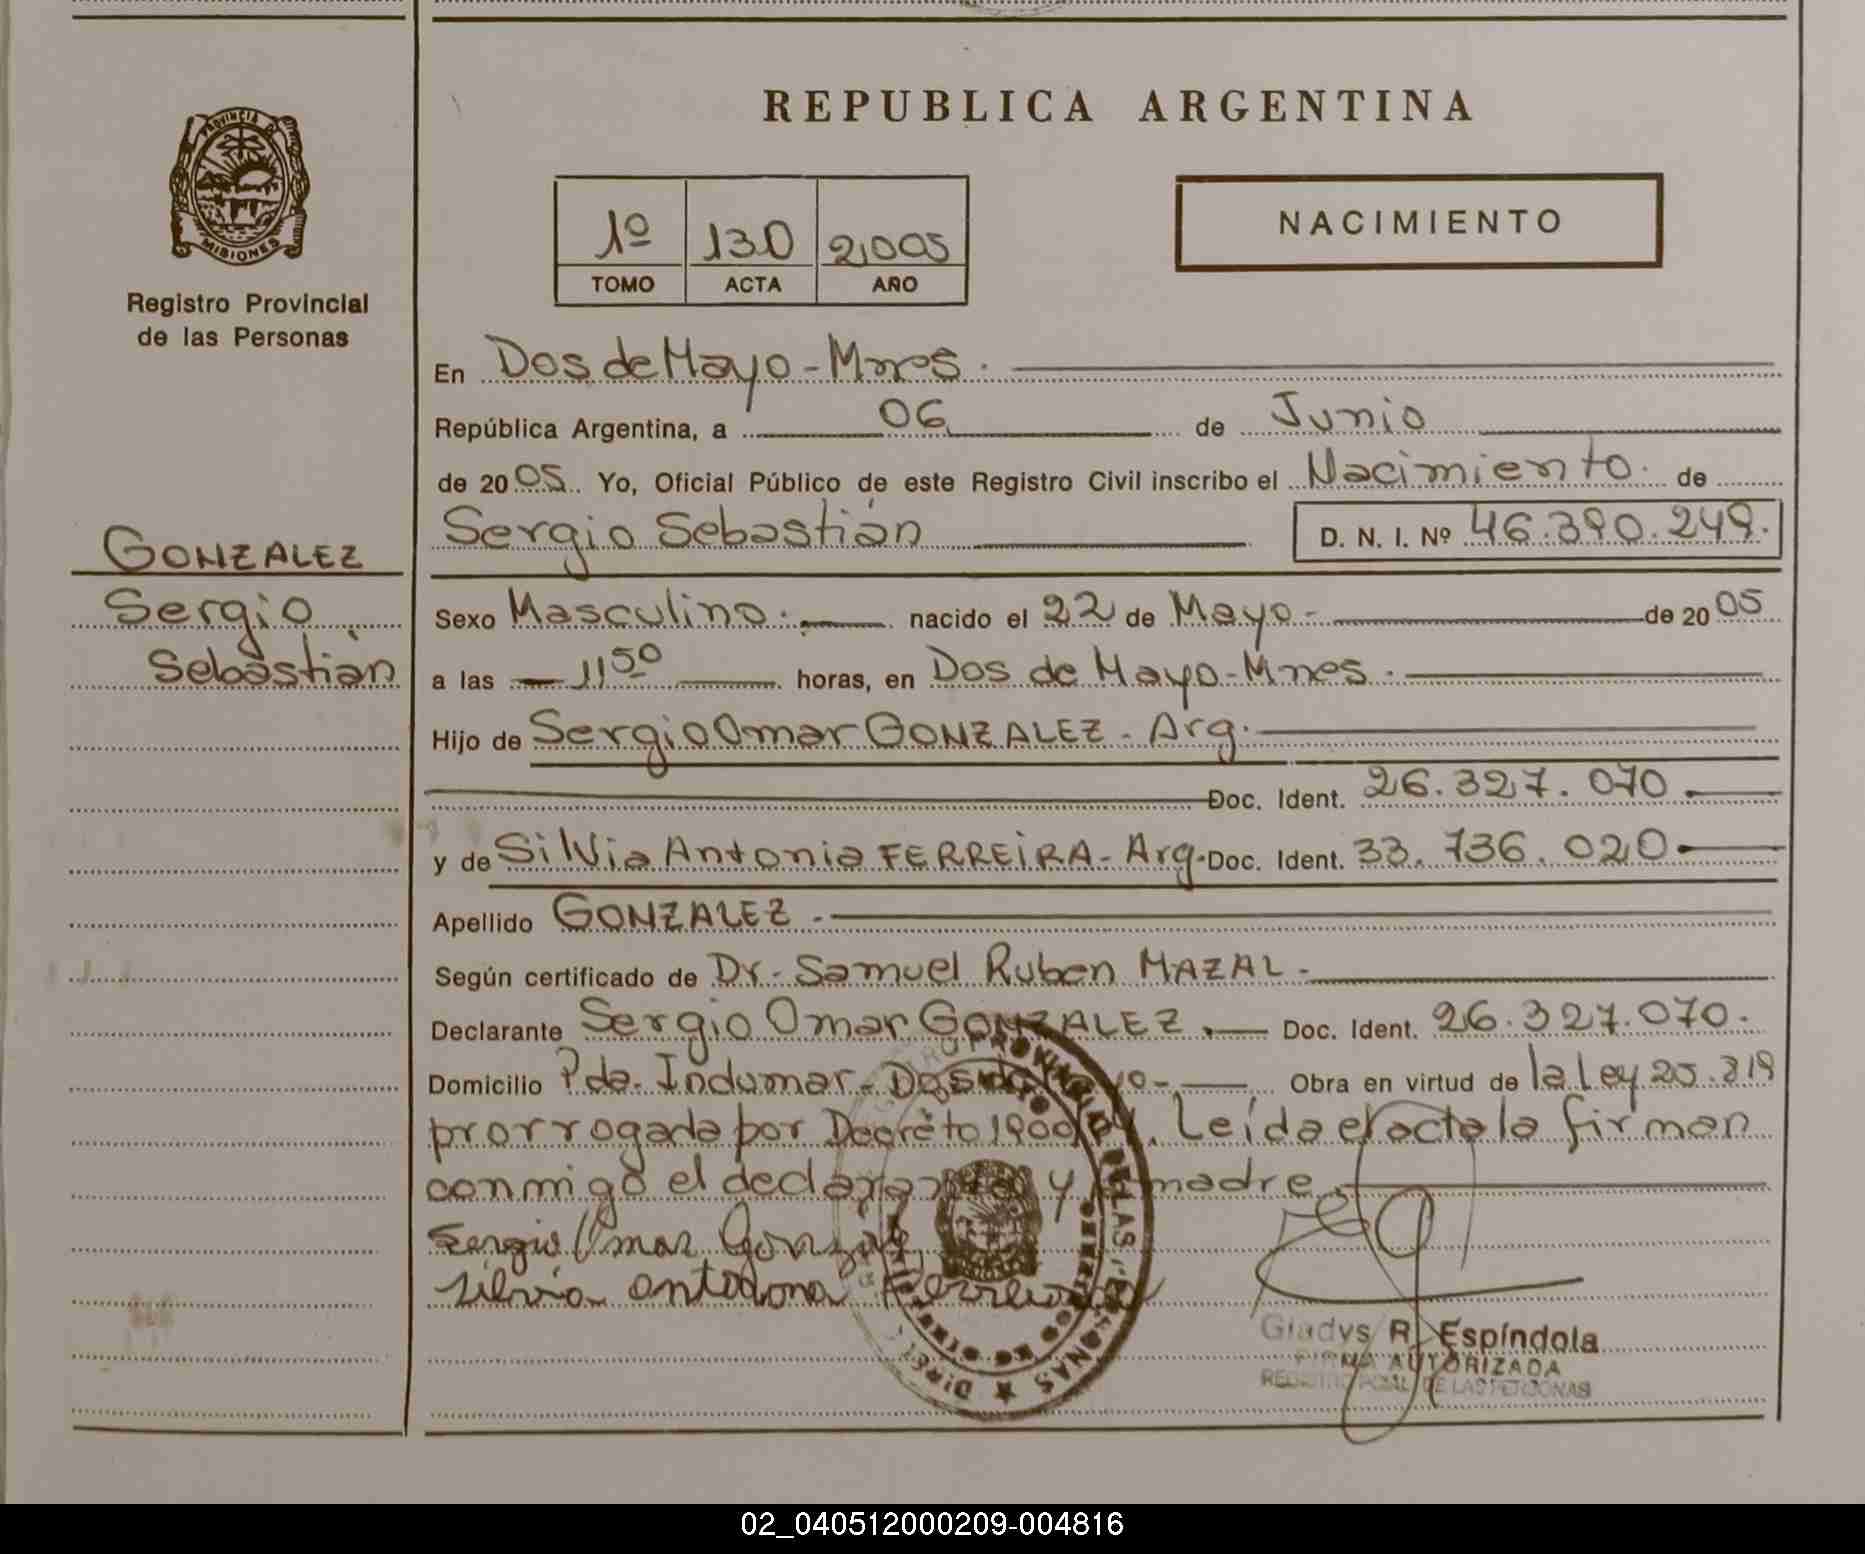 REPUBLICA ARGENTINA
PROVINCIA DE
MISIONES
Registro Provincial
de las Personas
1º 130 2,005
TOMO ACTA AÑO
NACIMIENTO
En Dos de Mayo - Mnes.
República Argentina, a 06 de Junio
de 2005 Yo, Oficial Público de este Registro Civil inscribo el Nacimiento de
Sergio Sebastián D. N. I. Nº 46.390.249.
GONZALEZ
Sergio
Sebastián
Sexo Masculino.- nacido el 22 de Mayo - de 2005
a las 11 50 horas, en Dos de Mayo - Mnes.
Hijo de Sergio Omar GONZALEZ - Arg.
Doc. Ident. 26.327.070
y de Silvia Antonia FERREIRA - Arg. Doc. Ident. 33.736.020
Apellido GONZALEZ.-
Según certificado de Dr. Samuel Ruben MAZAL -
Declarante Sergio Omar GONZALEZ.- Doc. Ident. 26.327.070.
Domicilio Pda. Indumar - Dos de Obra en virtud de la Ley 25.819
prorrogada por Decreto 1900/04. Leída el acta la firman
conmigo el declarante y madre
Sergio Omar Gonzalez
Silvia
Gladys R. Espíndola
FIRMA AUTORIZADA
REGISTRO PCIAL. DE LAS PERSONAS
02_040512000209-004816